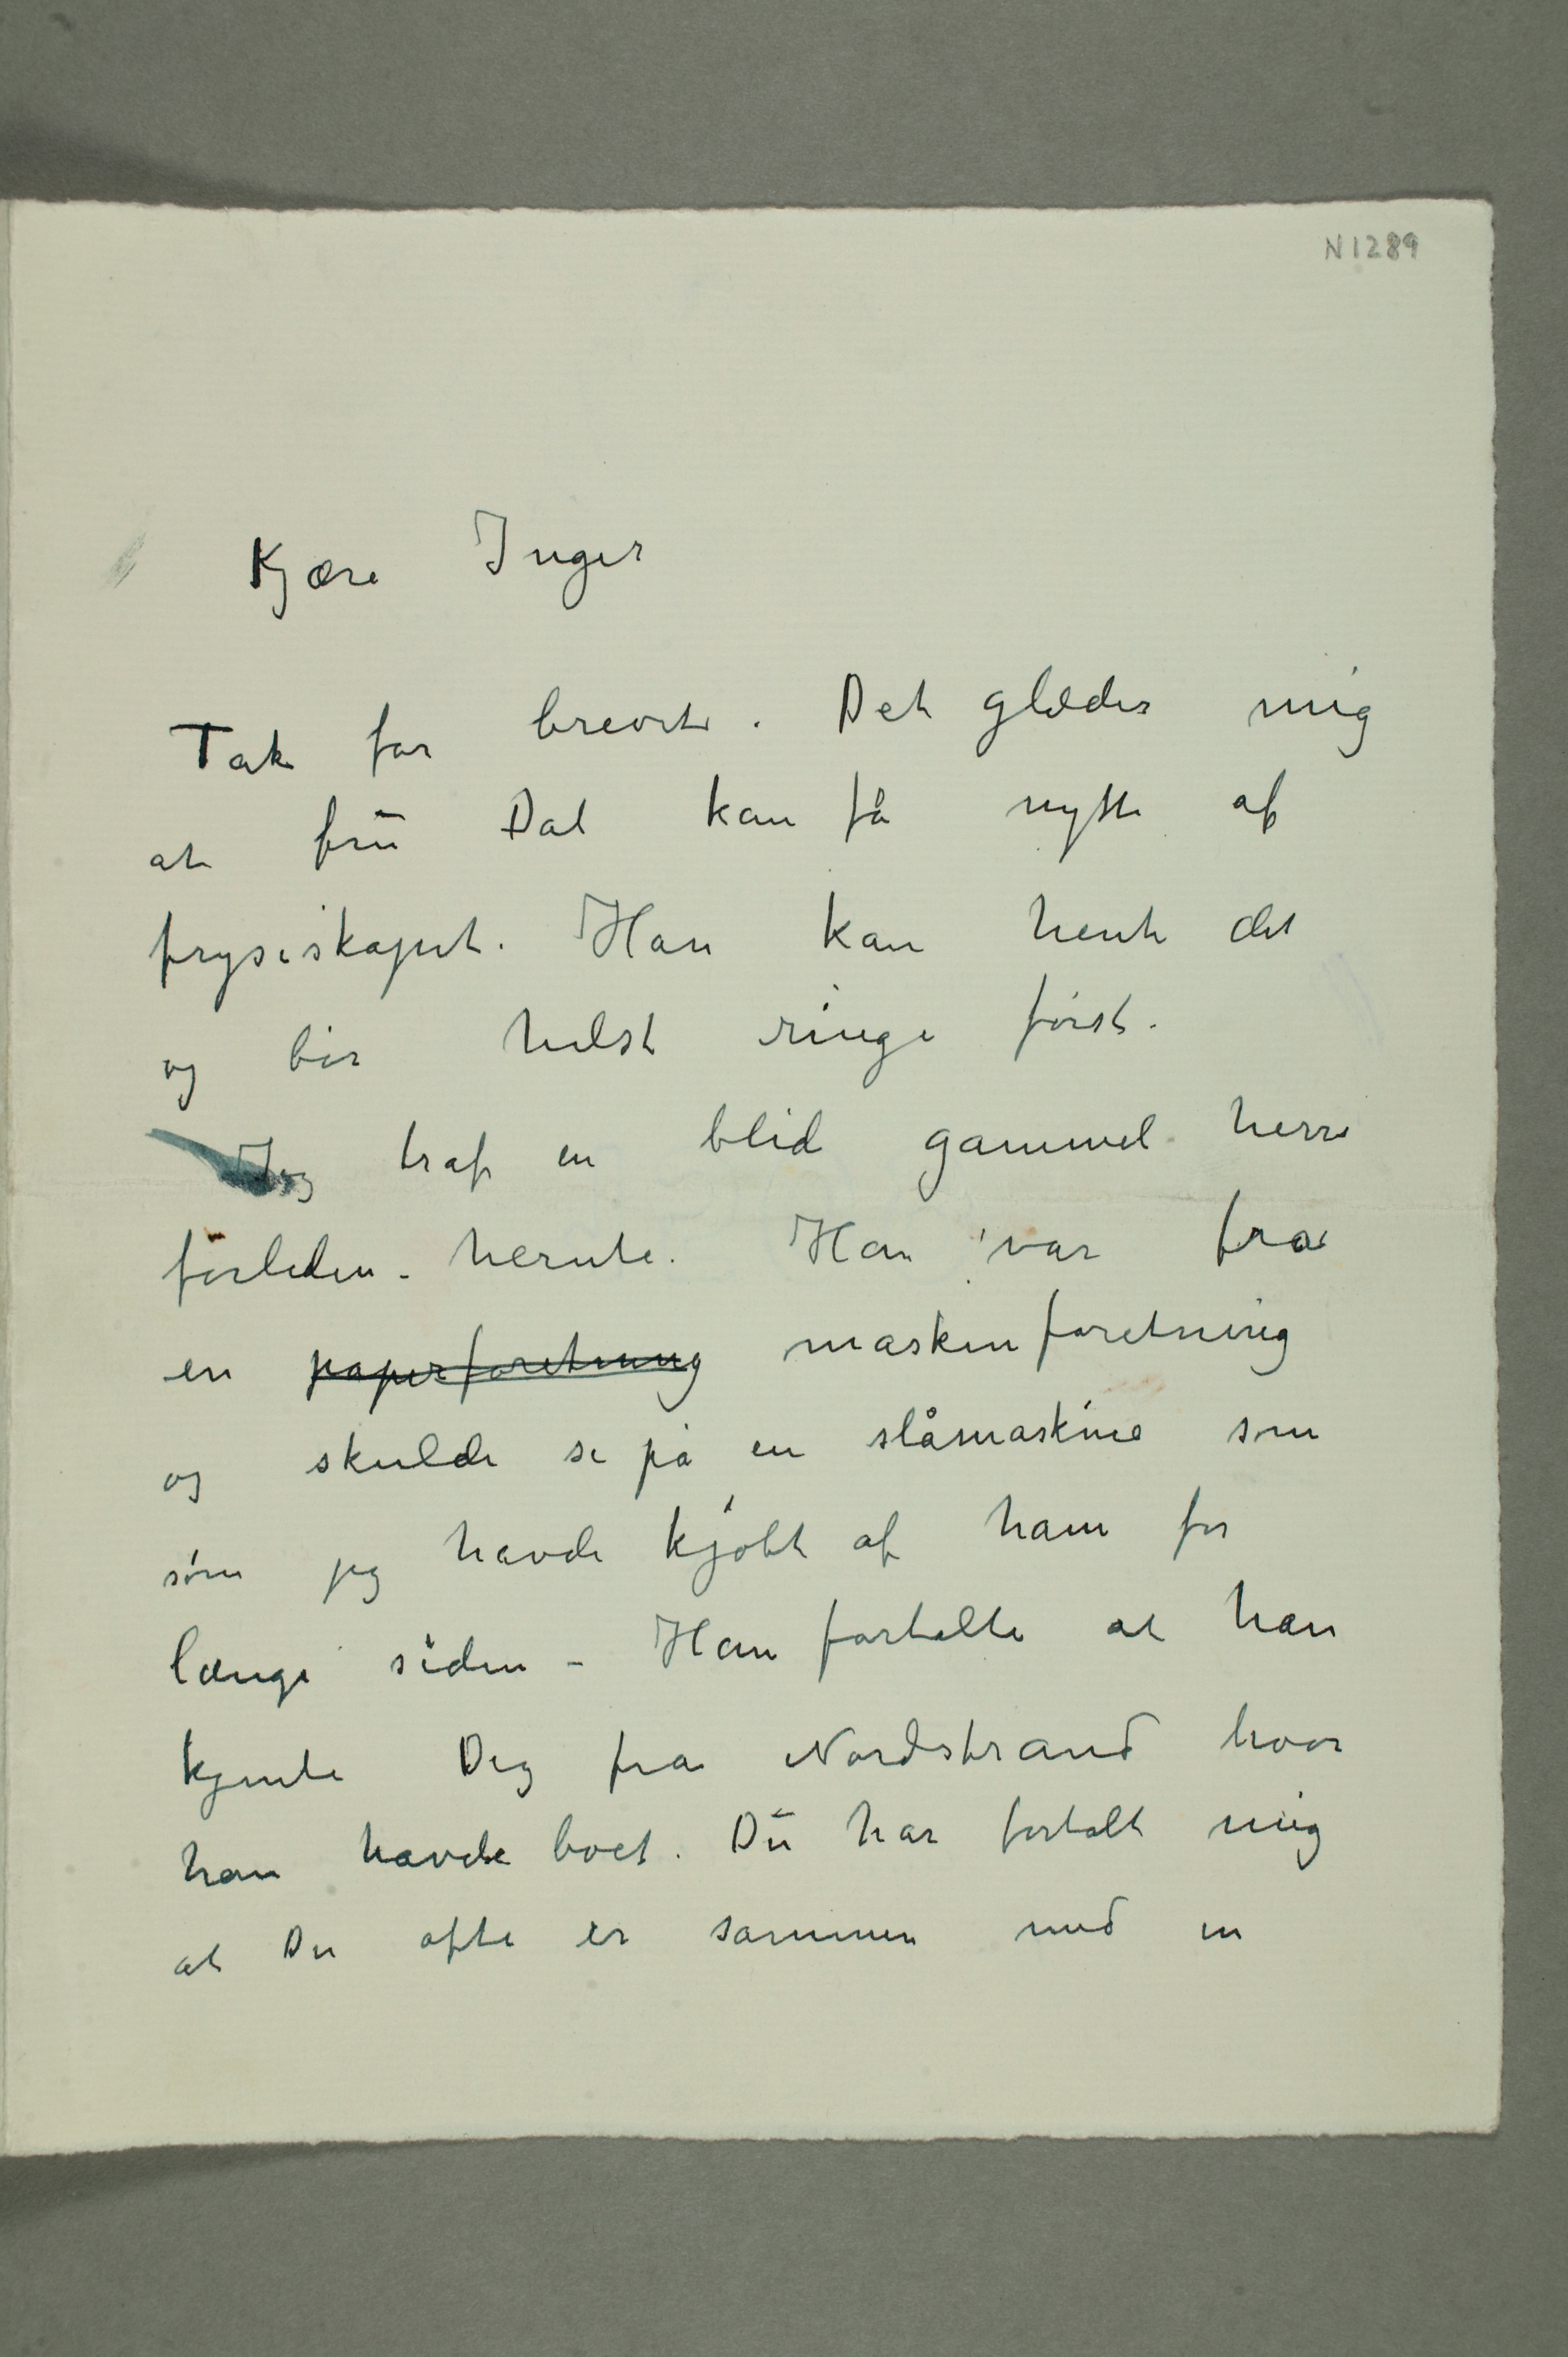 N1289
Kjære Inger
Tak for brevet. Det glæder mig
at frū Dal kan få nytte af
fryseskapet. Han kan hente det
og bör helst ringe först.
Jeg traf en blid gammel herre
forleden herute. Han var fra
en papirforetning maskinforetning
og skulde se på en slåmaskine som
som jeg havde kjöbt af ham for
længe siden – Han fortalte at han
kjendte Dig fra Nordstrand hvor
han havde boet. Dū har fortalt mig
at Du ofte er sammen med en